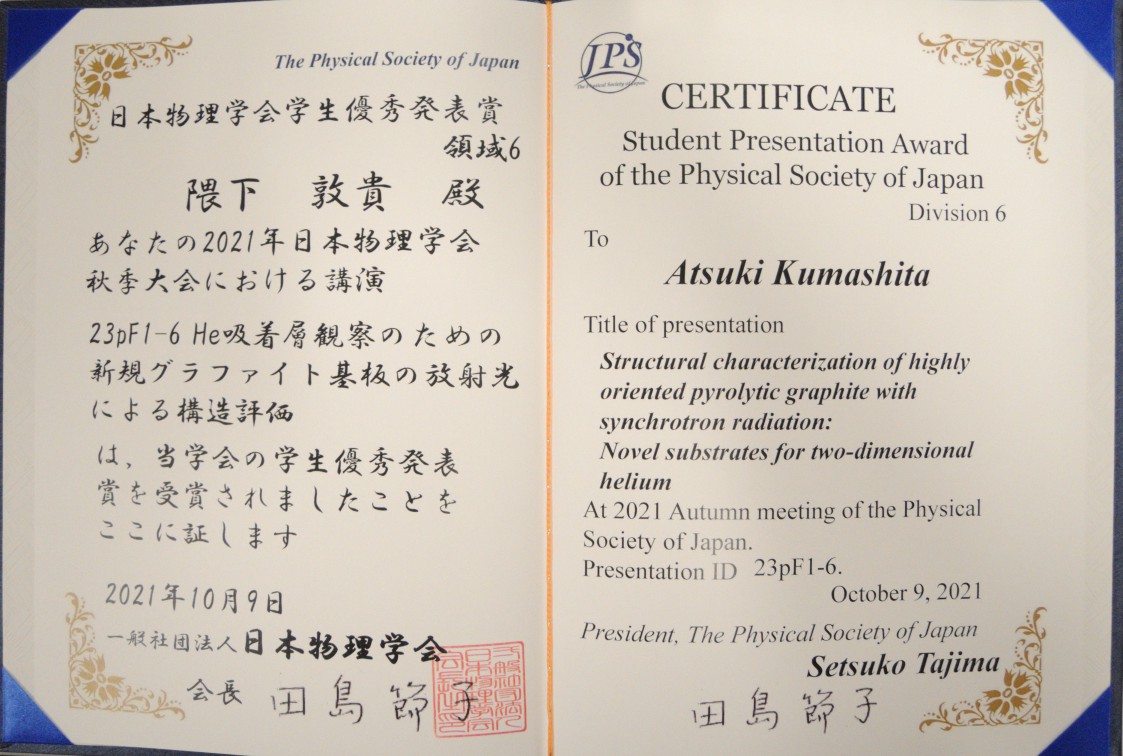 The Physical Society of Japan
日本物理学会学生優秀発表賞
領域6
隈下 敦貴 殿
あなたの2021年日本物理学会
秋季大会における講演
23pF1-6 He吸着層観察のための
新規グラファイト基板の放射光
による構造評価
は、当学会の学生優秀発表
賞を受賞されましたことを
ここに証します
2021年10月9日
一般社団法人日本物理学会
会長 田島節子
JPS
The Physical Society of Japan
CERTIFICATE
Student Presentation Award
of the Physical Society of Japan
Division 6
To
Atsuki Kumashita
Title of presentation
Structural characterization of highly
oriented pyrolytic graphite with
synchrotron radiation:
Novel substrates for two-dimensional
helium
At 2021 Autumn meeting of the Physical
Society of Japan.
Presentation ID 23pF1-6.
October 9, 2021
President, The Physical Society of Japan
Setsuko Tajima
田島節子